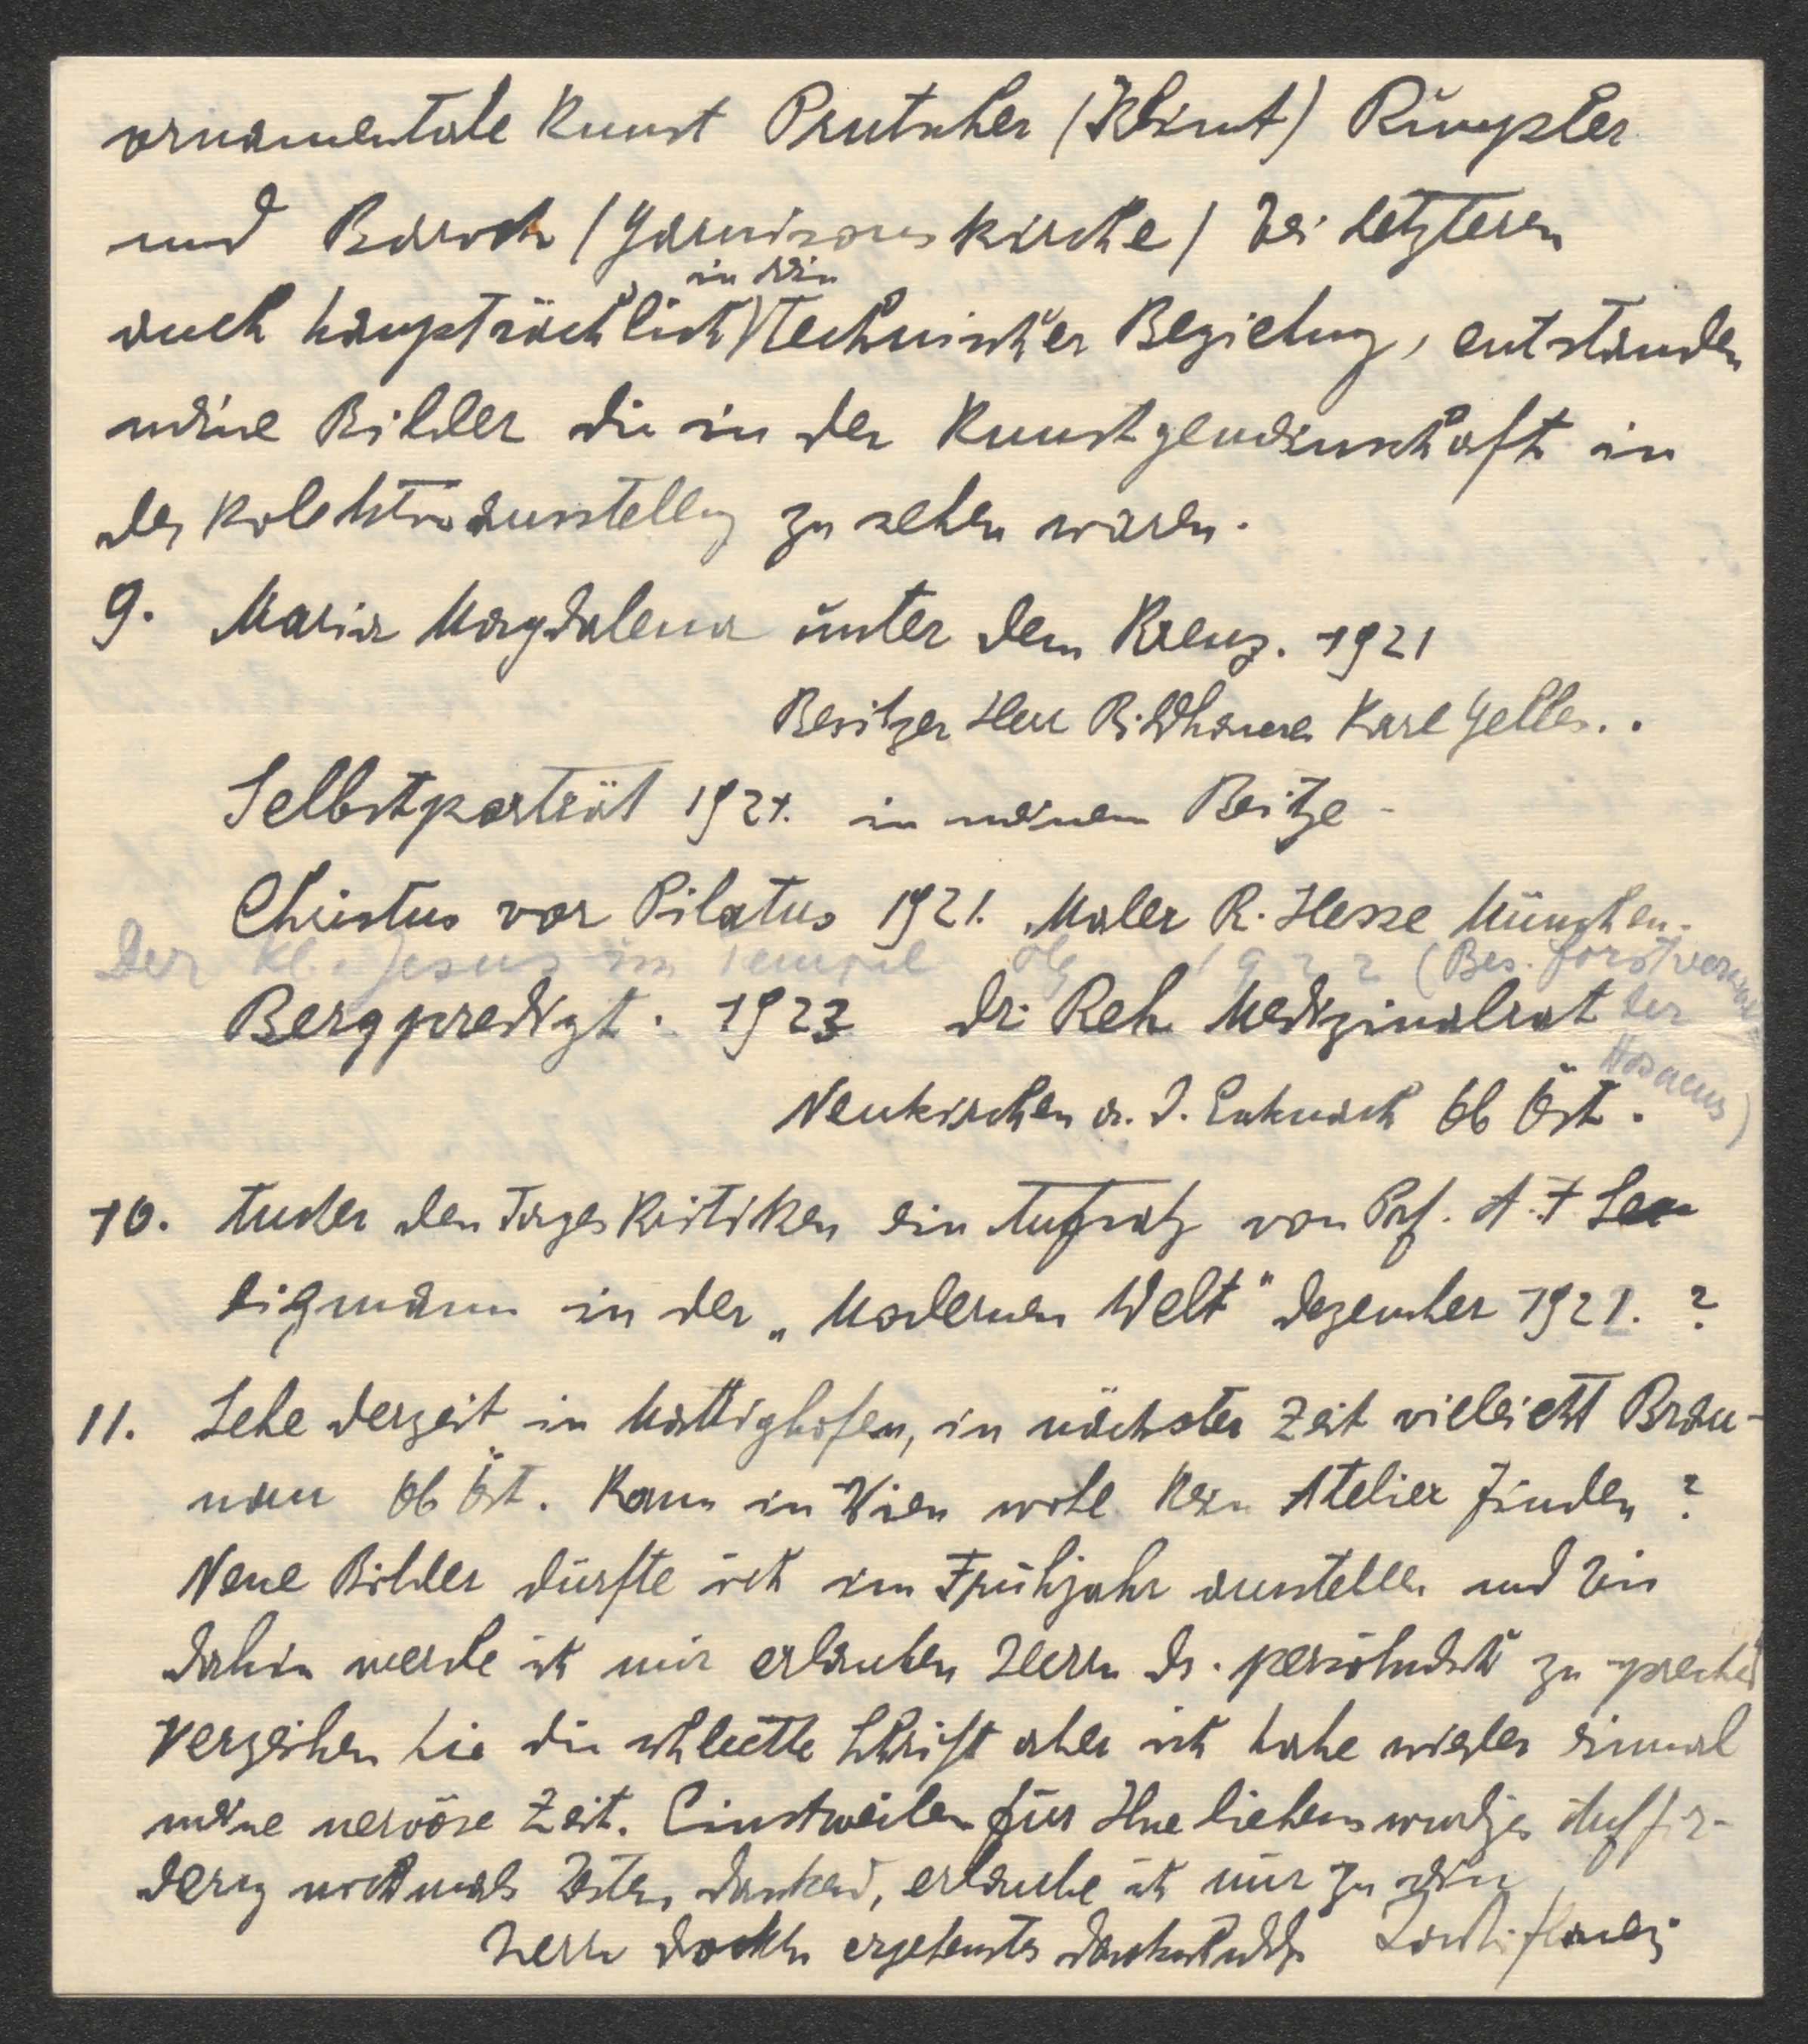 ornamentale Kunst Prutscher (Klimt) Rümpler
und Barock (Garnisonskirche) bei letzteren
in rein
auch hauptsächlich technischer Beziehung, entstanden
meine Bilder die in der Kunstgemeinschaft in
der Kolektivausstellung zu sehen waren.
9. Maria Magdalena unter dem Kreuz. 1921
Besitzer Herr Bildhauer Karl
Selbstporträt 1921. in meinem Beitze -
Christus vor Pilatus 1921. Maler R. Hesse München.
Der kl. Jesus im Tempel Ölg 1922 (Bes. Forstverwalter
Bergpredigt. 1923 Dr. Reh Medizinalrat der
Neukirchen a. d. Enknach Ob Öst.
10. Außer den Tageskritiken ein Aufsatz von Prof. A. F. Seeligmann in der „Modernen Welt" Dezember 1921. ?
11. Lebe derzeit in Mattighofen, in nächster Zeit vieleicht Brau-
nau Ob Öst. Kann in Wien wohl kein Atelier finden ?
Neue Bilder dürfte ich im Frühjahr austellen und bis
dahin werde ich mir erlauben Herrn Dr. persöhnlich zu sprechen
Verzeihen Sie die schlechte Schrift aber ich habe wieder einmal
meine nervöse Zeit. Einstweilen für Ihre liebenswürdige Auffor-
derung nochmals bestens dankend, erlaube ich mir zu sein
Herrn Doktor ergebenster